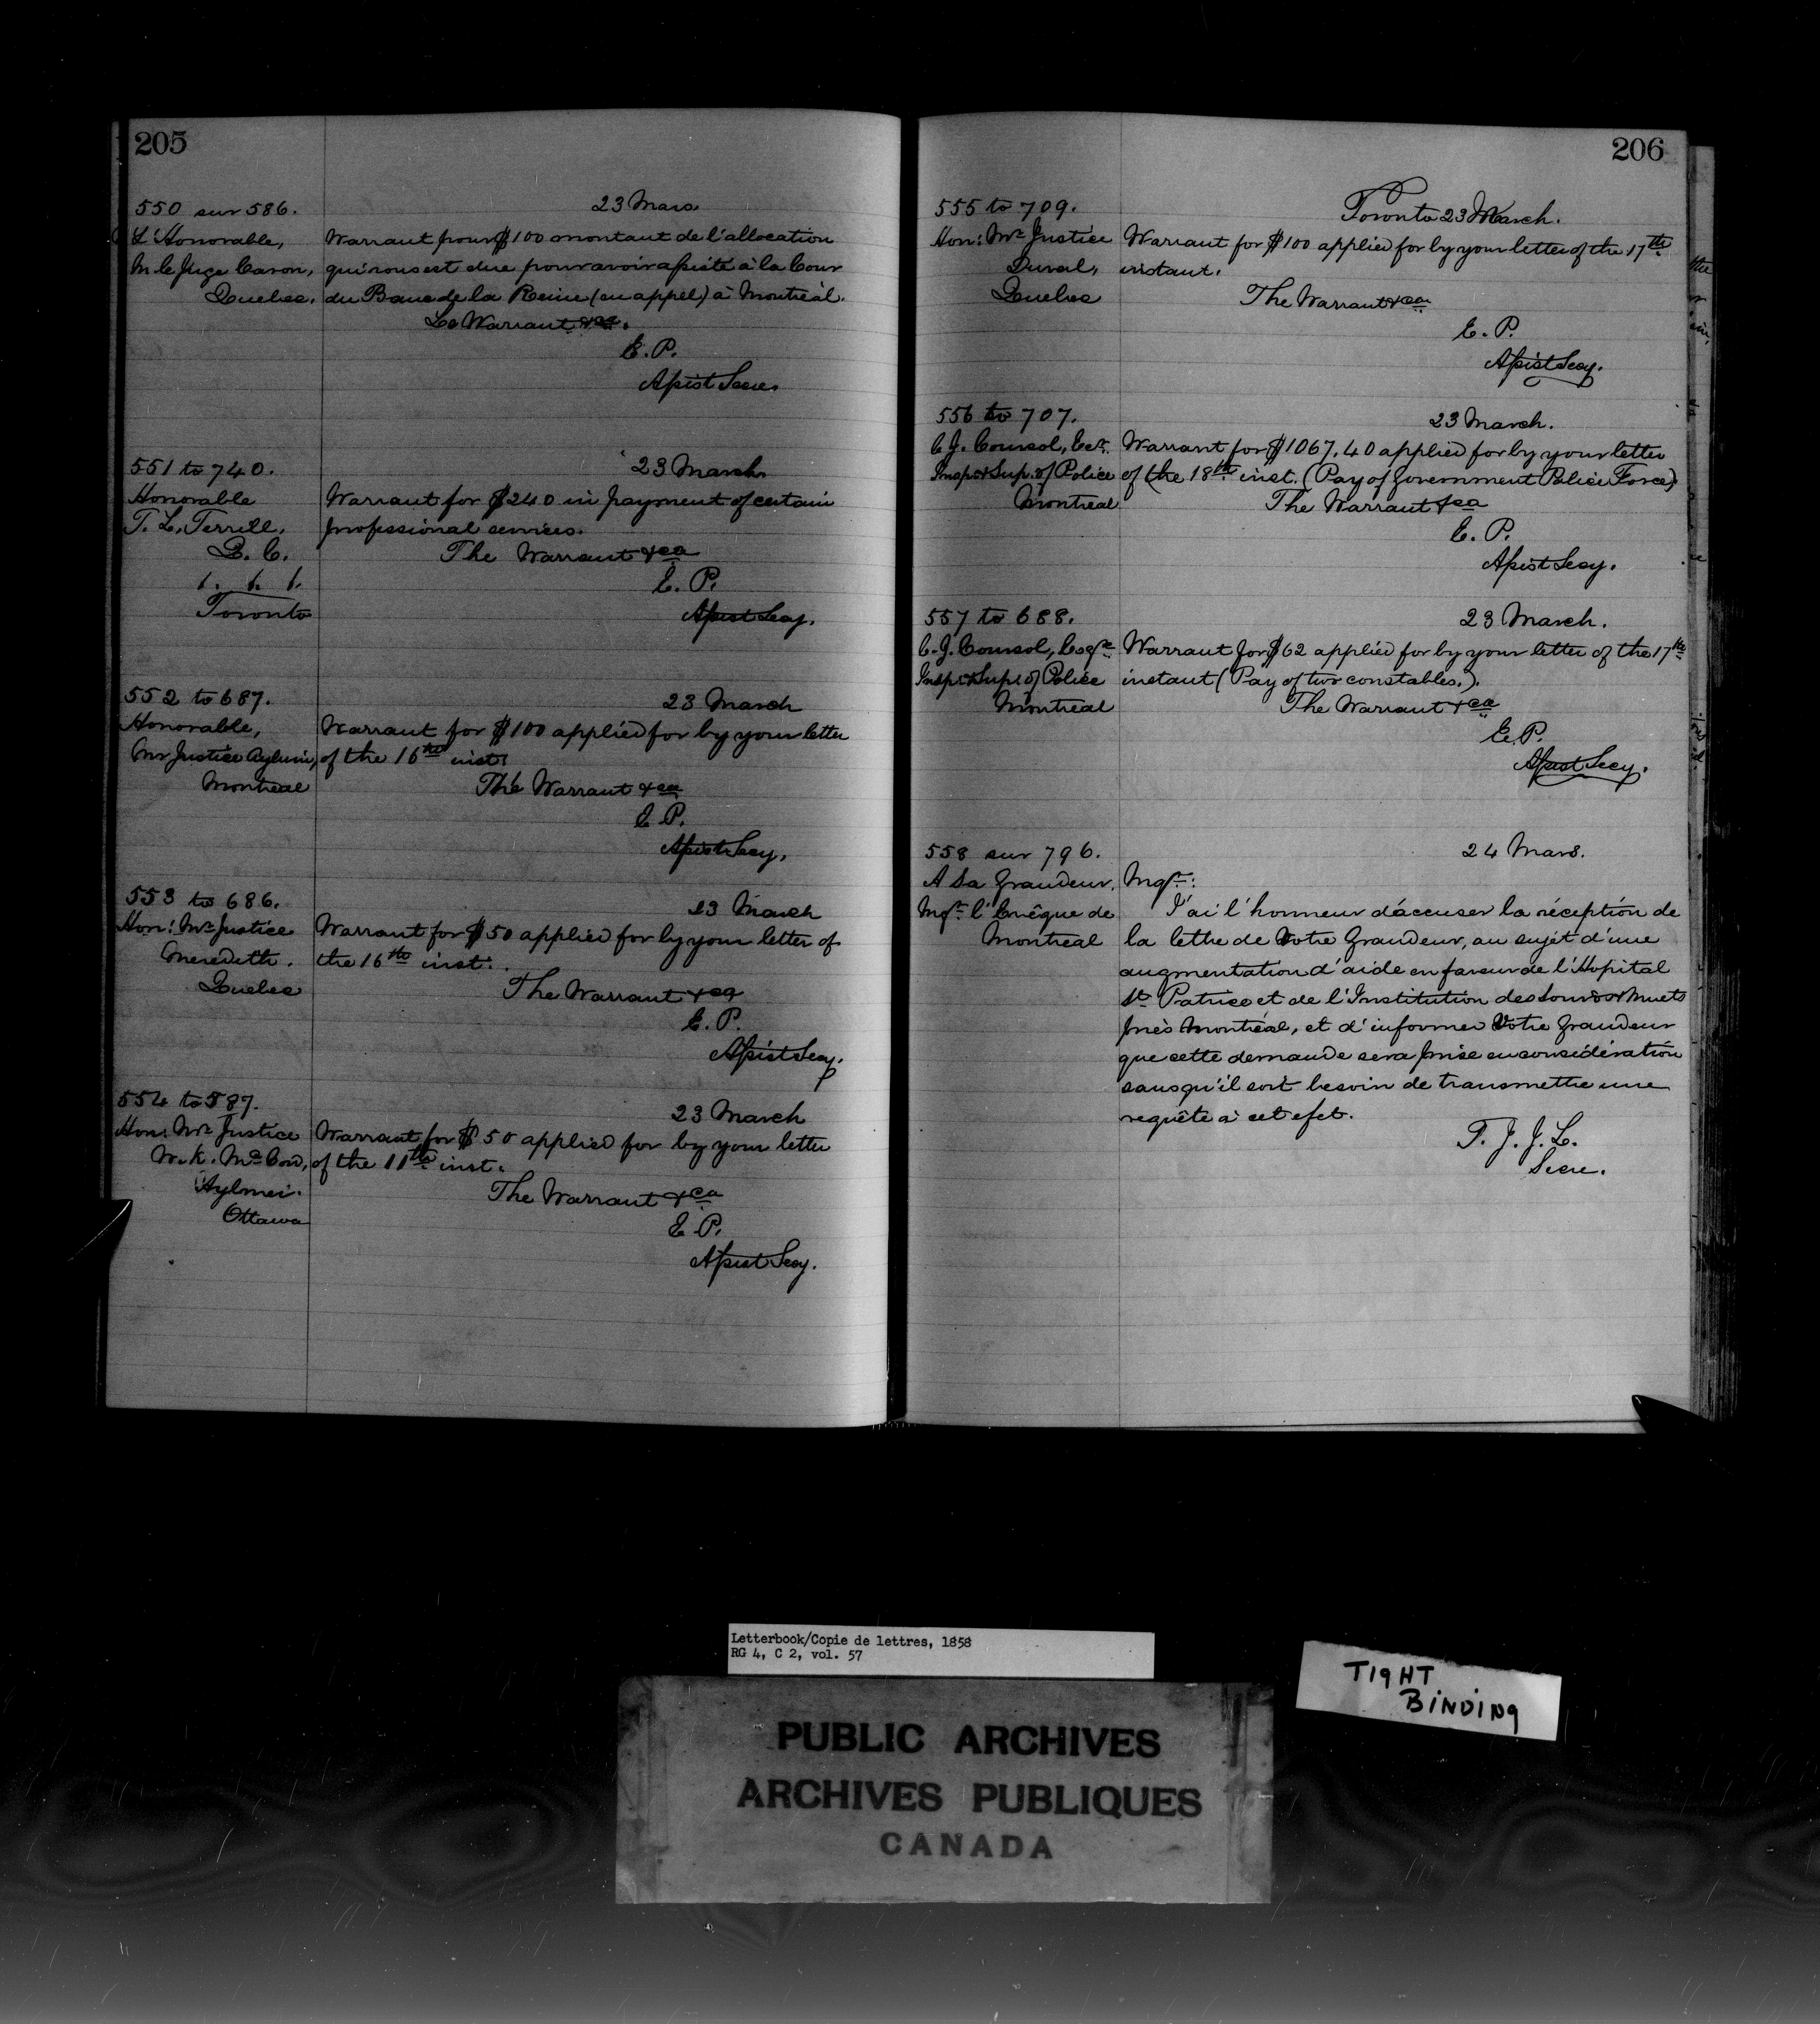 205
550 sur 586.
23 Mars
L'Honorable,
M. le Juge Caron,
Quebec.
Warrant pour $100 montant de l'allocation
qui vous est due pour avoir assisté à la Cour
du Banc de la Reine (en appel) à Montréal.
Le Warrant &ca.
E. P.
Assist Secre.
551 to 740.
23 March
Honorable
T. L. Terrill,
Q. C.
Toronto
Warrant for $240 in payment of certain
professional services.
The Warrant &ca
E. P.
Assist Secy.
552 to 687.
23 March
Honorable,
Mr Justice Aylwin,
Montreal
Warrant for $100 applied for by your letter
of the 16th inst.
The Warrant &ca
E. P.
Assist Secy.
553 to 686.
23 March
Hon: Mr Justice
Meredith.
Quebec
Warrant for $50 applied for by your letter of
the 16th inst.
The Warrant &ca
E. P.
Assist Secy.
554 to 587.
23 March
Hon: Mr Justice
W. K. McCord,
Aylmer.
Ottawa
Warrant for $50 applied for by your letter
of the 11th inst.
The Warrant &ca
E. P.
Assist Secy.
206
555 to 709.
Toronto 23 March.
Hon: Mr Justice
Duval,
Quebec
Warrant for $100 applied for by your letter of the 17th
instant.
The Warrant &ca
E. P.
Assist Secy.
556 to 707.
23 March.
C. J. Coursol, Esqr.
Insp & Sup. of Police
Montreal
Warrant for $1067.40 applied for by your letter
of the 18th inst. (Pay of Government Police Force)
The Warrant &ca
E. P.
Assist Secy.
557 to 688.
23 March.
C. J. Coursol, Esqre
Insp & Sup. of Police
Montreal
Warrant for $62 applied for by your letter of the 17th
instant (Pay of two constables.).
The Warrant &ca
E. P.
Assist Secy.
558 sur 796.
24 Mars.
A Sa Grandeur,
Mgr l'Evêque de
Montreal
Mgr:
J'ai l'honneur d'accuser la réception de
la lettre de Votre Grandeur, au sujet d'une
augmentation d'aide en faveur de l'Hopital
St Patrice et de l'Institution des Sourds & Muets
près Montréal, et d'informer Votre Grandeur
que cette demande sera prise en considération
sans qu'il soit besoin de transmettre une
requête à cet efet.
T. J. J. L.
Secre.
Letterbook/Copie de lettres, 1858
RG 4, C 2, vol. 57
TIGHT
BINDING
PUBLIC ARCHIVES
ARCHIVES PUBLIQUES
CANADA